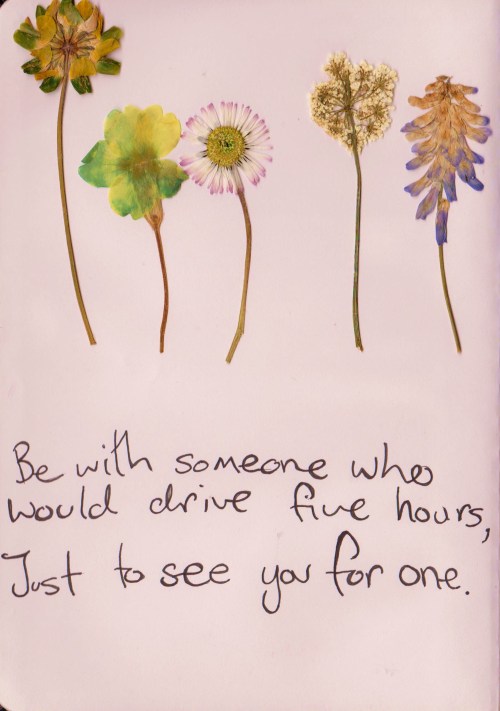 Be with someone who
would drive five hours,
Just to see you for one.